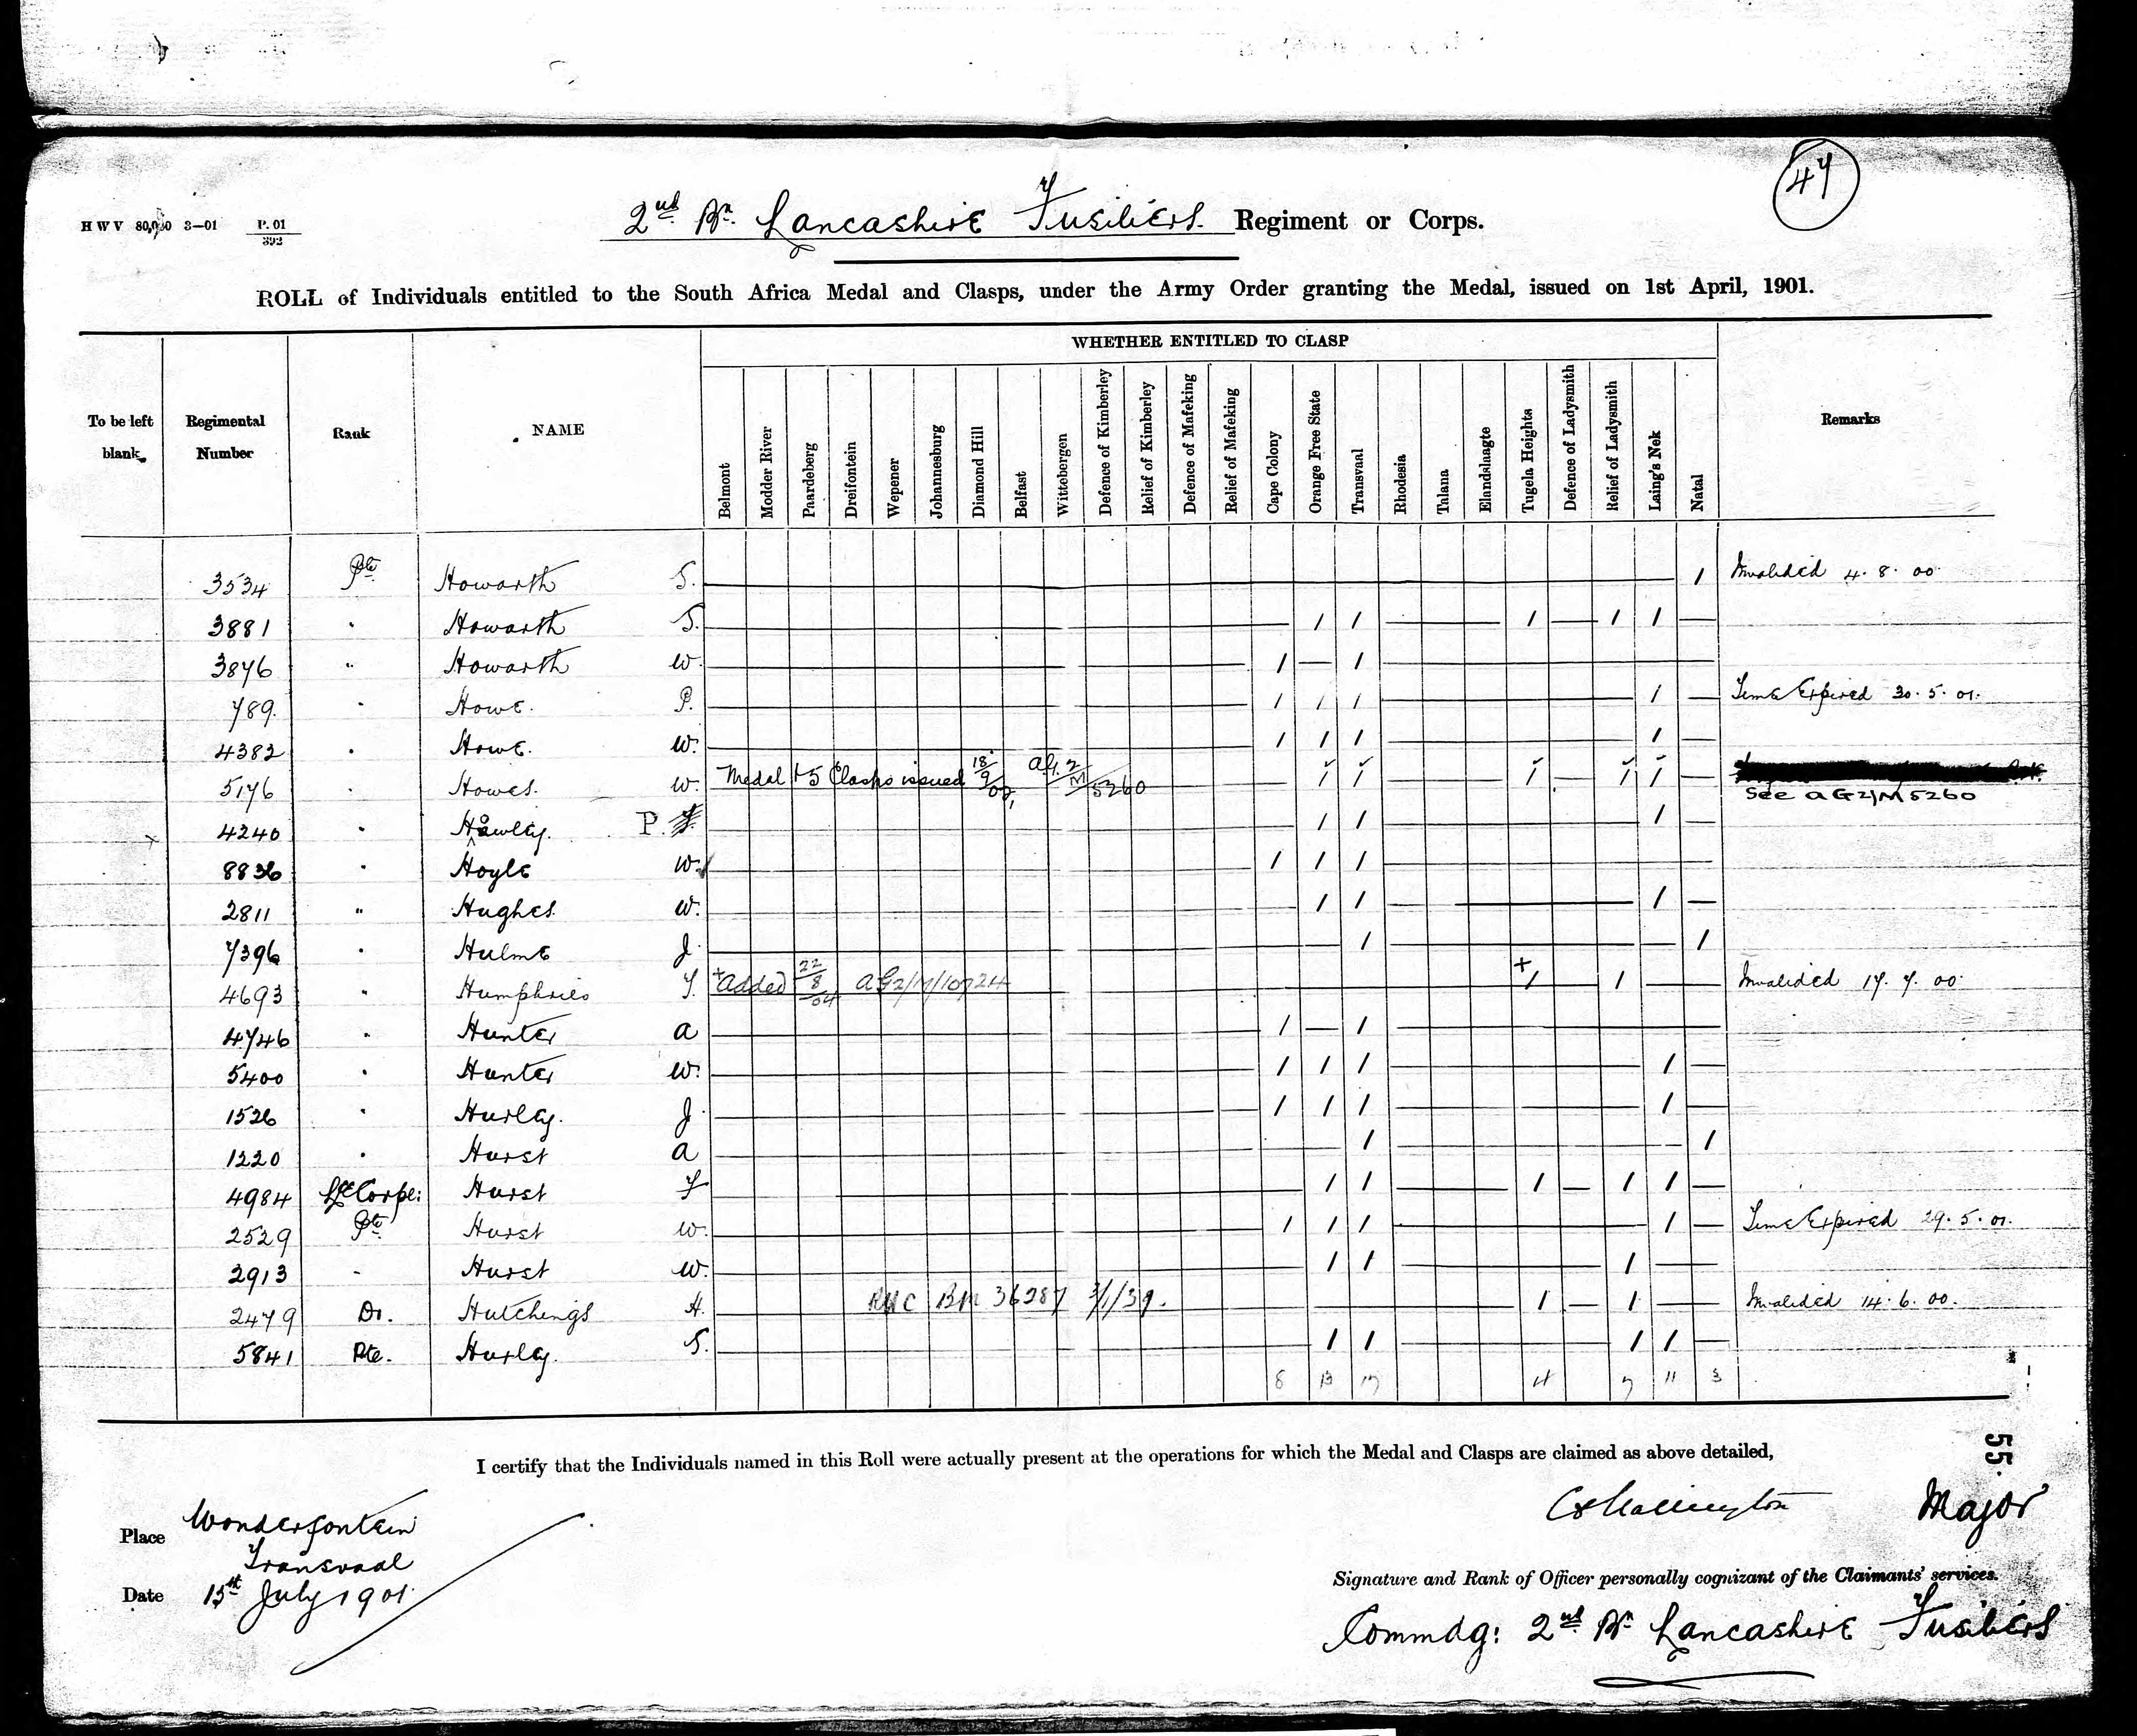 47
H W V 80,000 3—01 P. 01
392
2nd Bn. Lancashire Fusiliers. Regiment or Corps.
ROLL of Individuals entitled to the South Africa Medal and Clasps, under the Army Order granting the Medal, issued on 1st April, 1901.
WHETHER ENTITLED TO CLASP
To be left blank. Regimental Number Rank NAME Belmont Modder River Paardeberg Dreifontein Wepener Johannesburg Diamond Hill Belfast Wittebergen Defence of Kimberley Relief of Kimberley Defence of Mafeking Relief of Mafeking Cape Colony Orange Free State Transvaal Rhodesia Talana Elandslaagte Tugela Heights Defence of Ladysmith Relief of Ladysmith Laing's Nek Natal Remarks
3534 Pte Howarth S. 1 Invalided 4. 8. 00
3881 " Howarth S. 1 1 1 1 1
3876 " Howarth W. 1 1
789. " Howe. P. 1 1 1 1 Time Expired 30. 5. 01.
4382 " Howe. W. 1 1 1 1
5176 " Howes. W. Medal & 5 Clasps issued 18/9/02, AG. 2/M/5260 1 1 1 1 1
See AG2/M5260
4240 " Howley. P. 1 1 1
8836 " Hoyle W. 1 1 1
2811 " Hughes. W. 1 1 1
7396 " Hulme J. 1 1
4693 " Humphries T. + Added 22/8/04 AG2/M/10724 + 1 1 Invalided 17. 7. 00
4746 " Hunter A 1 1
5400 " Hunter W. 1 1 1 1
1526 " Hurley. J. 1 1 1 1
1220 " Hurst A 1 1
4984 Lce Corpl: Hurst 1 1 1 1 1
2529 Pte Hurst W. 1 1 1 1 Time Expired 29. 5. 01.
2913 " Hurst W. 1 1 1
2479 Dr. Hutchings H. 1 1 Invalided 14. 6. 00.
5841 Pte. Huxley. S. 1 1 1 1
8 13 17 4 7 11 3
I certify that the Individuals named in this Roll were actually present at the operations for which the Medal and Clasps are claimed as above detailed,
55.
Place Wonderfontein Transvaal
Major
Date July 1901
Signature and Rank of Officer personally cognizant of the Claimants' services.
Commdg: 2nd Bn Lancashire Fusiliers